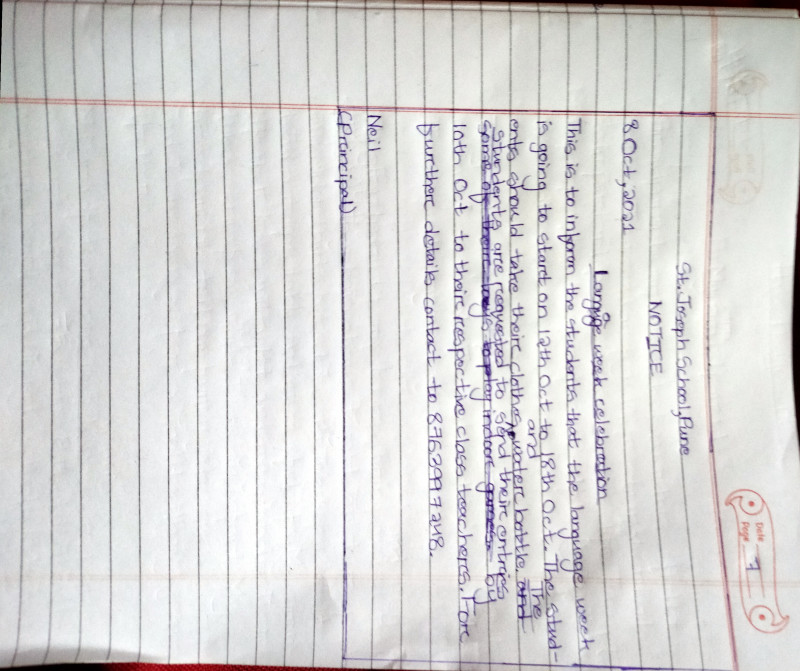 Date
Page 7
St. Joseph School, Pune
NOTICE
8 Oct, 2021
Langage week celebration
This is to inform the students that the language week
is going to start on 12th Oct to 18th Oct. The stud-
ents should take their clothes, and water bottle. The
students are requested to send their entries by
10th Oct to their respective class teachers. For
further details contact to 8763997248.
Neil
(Principal)